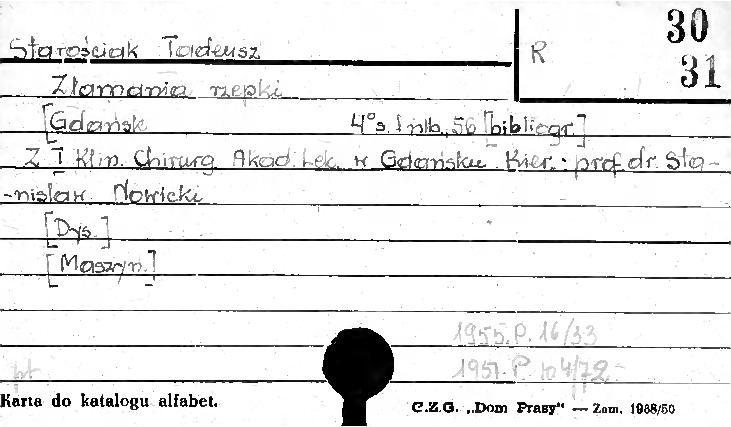 Starościak Tadeusz R 30
31
Złamania rzepki
[Gdańsk 4° s. 1 nlb., 56 [bibliogr.]
Z I Klin. Chirurg Akad. Lek. w Gdańsku. Kier.: prof. dr. Sta-
-nisław Nowicki
[Dys.]
[Maszyn.]
1955. P. 16/33
pt
Karta do katalogu alfabet. C.Z.G. „Dom Prasy" — Zam. 1988/50